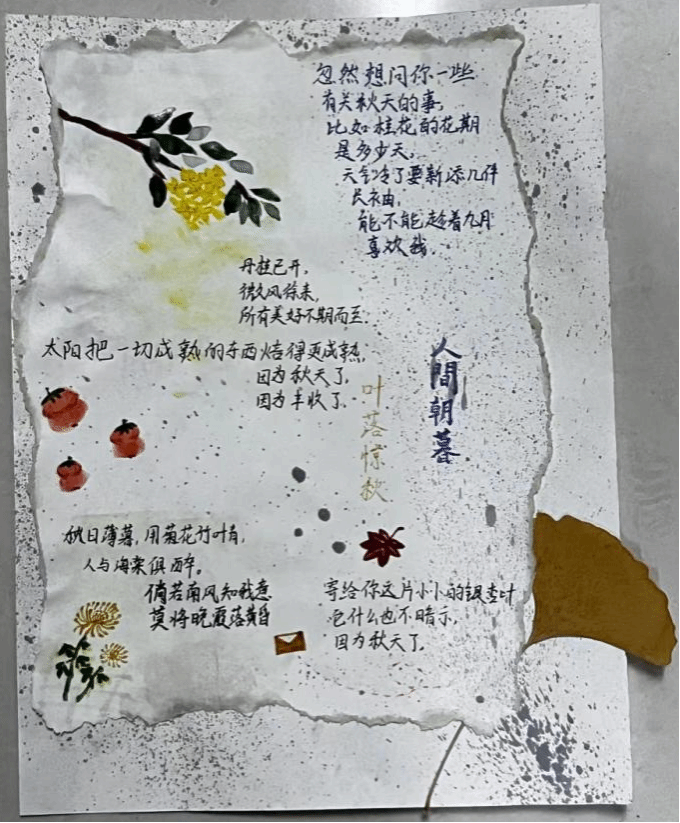 忽然想问你一些
有关秋天的事,
比如桂花的花期
是多少天,
天气冷了要新添几件
长衣曲,
能不能趁着九月
喜欢我.
丹桂已开,
微风徐来,
所有美好不期而至.
太阳把一切成熟的东西焙得更成熟,
因为秋天了,
因为丰收了.
人間朝暮
叶落惊秋
秋日薄暮,用菊花竹叶青,
人与海棠俱醉。
倘若南风知我意
莫将晚霞落黄昏
寄给你这片小小的银杏叶
它什么也不暗示,
因为秋天了,